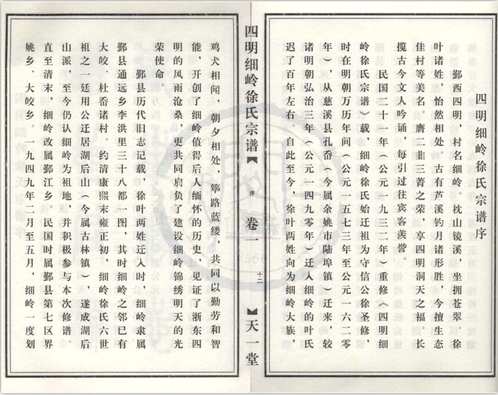 四明细岭徐氏宗谱序
鄞西四明，村名细岭，枕山镜溪，坐拥苍翠，徐
叶诸姓，怡然相处。古有芦溪钓月诸形胜，今擅生态
佳村等美名，膺二韭三菁之荣，享四明洞天之福，长
揽古今文人吟诵，每引过往宾客羡誉。
民国二十一年（公元一九三二年）重修《四明细
岭徐氏宗谱》载，细岭徐氏始迁祖为守信公徐圣修，
时在明朝万历年间（公元一五七三年至公元一六二零
年），从慈溪县孔岙（今属余姚市陆埠镇）迁来，较
诸明朝弘治三年（公元一四九零年）迁细岭的叶氏
迟了百年左右。自此至今，徐叶两姓向为细岭大族，
四明细岭徐氏宗谱【序】卷一 十二 【天一堂
鸡犬相闻，朝夕相处，筚路蓝缕，共同以勤劳和智
能，开创了细岭值得后人缅怀的历史，见证了浙东四
明的风雨沧桑，更共同肩负了建设细岭锦绣明天的光
荣使命。
鄞县历代旧志记载，徐叶两姓迁入时，细岭隶属
鄞县通远乡李洪里三十八都一图，其时细岭之邻已有
大皎、杜岙诸村。约清康熙末雍正初，细岭徐氏六世
祖之一廷用公迁居湖后山（今属古林镇），遂成湖后
山派，至今仍认细岭为祖地，并积极参与本次修谱。
直至清末，细岭改属鄞江乡。民国时属鄞县第七区界
姚乡、大皎乡。一九四九年二月至五月，细岭一度划